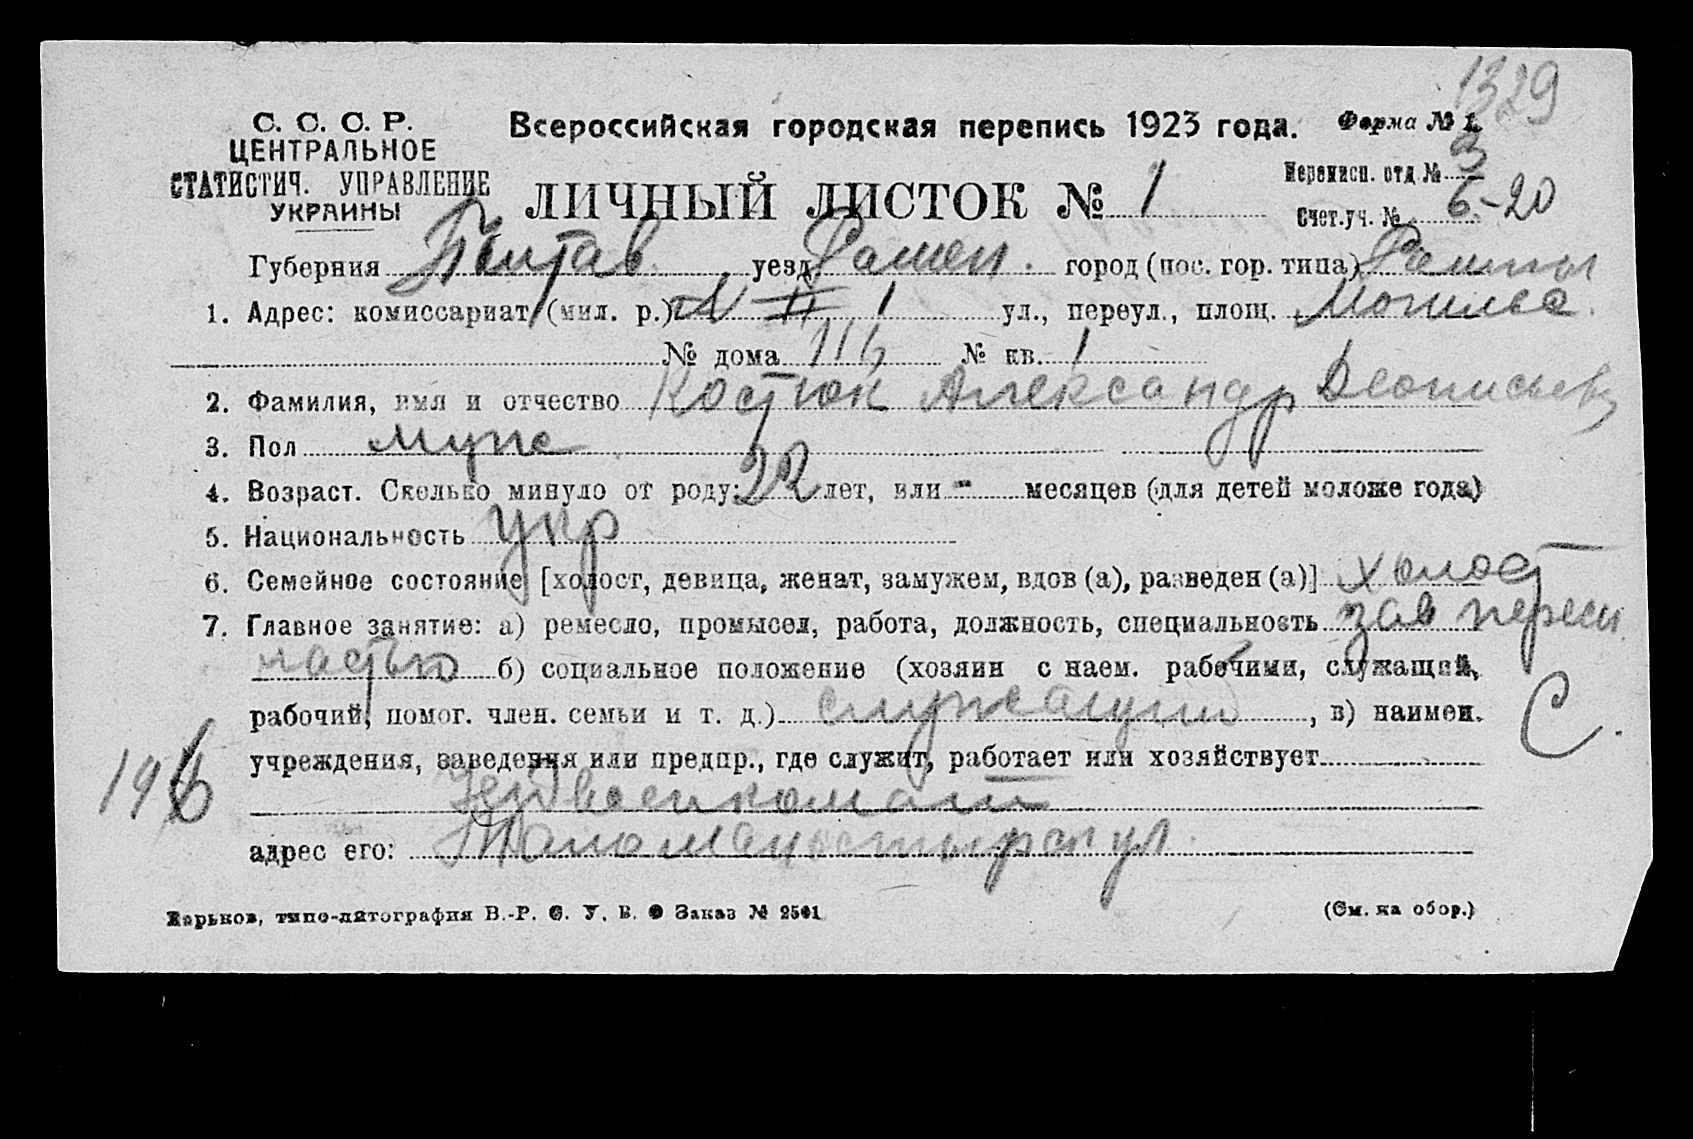 1329
С. С. С. Р.
ЦЕНТРАЛЬНОЕ
СТАТИСТИЧ. УПРАВЛЕНИЕ
УКРАИНЫ
Всероссийская городская перепись 1923 года.
Форма № 1.
ЛИЧНЫЙ ЛИСТОК № 1
Переписн. отд. № 3
Счет.уч. № 6-20
Губерния Полтав. уезд Ромен. город (пос. гор. типа) Ромны
1. Адрес: комиссариат (мил. р.) 1 ул., переул., площ.
№ дома 116 № кв. 1
2. Фамилия, имя и отчество Костюк Александр Деонисьев
3. Пол муж
4. Возраст. Сколько минуло от роду: 22 лет, или - месяцев (для детей моложе года)
5. Национальность укр
6. Семейное состояние [холост, девица, женат, замужем, вдов (а), разведен (а)] холост
7. Главное занятие: а) ремесло, промысел, работа, должность, специальность зав
частью б) социальное положение (хозяин с наем. рабочими, служащий,
рабочий, помог. член. семьи и т. д.) служащий, в) наимен.
С.
учреждения, заведения или предпр., где служит, работает или хозяйствует
196
адрес его: ул.
Харьков, типо-литография В.-Р. С. У. В. О Заказ № 2501
(См. на обор.)